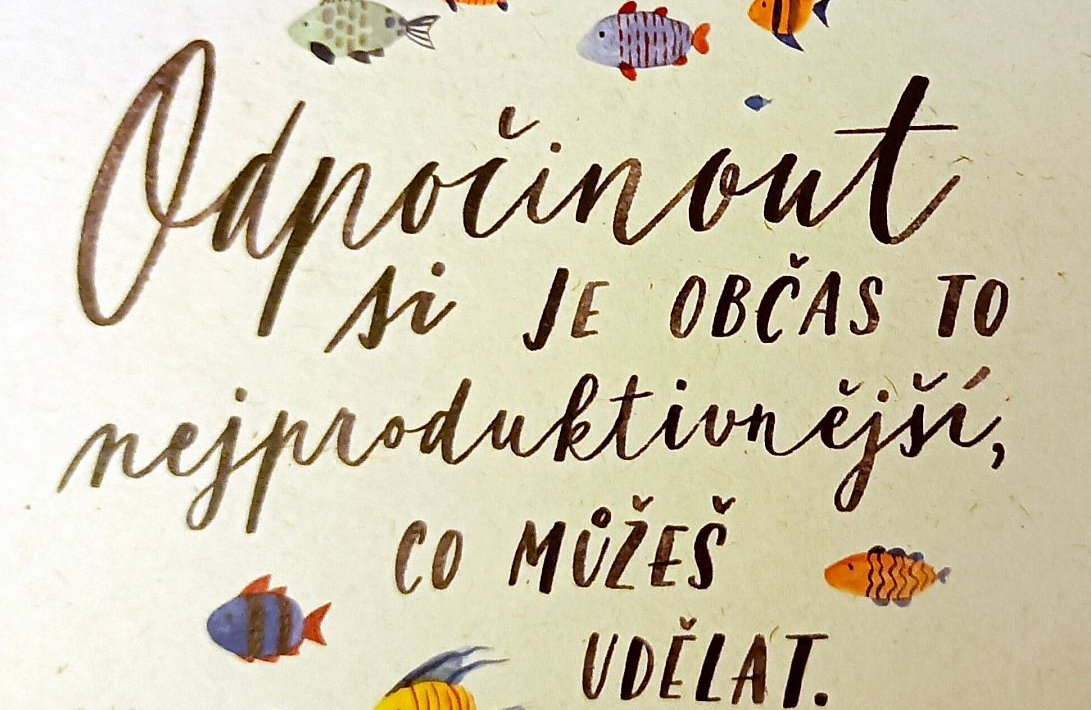 Odpočinout
si JE OBČAS TO
nejproduktivnější,
CO MŮŽEŠ
UDĚLAT.